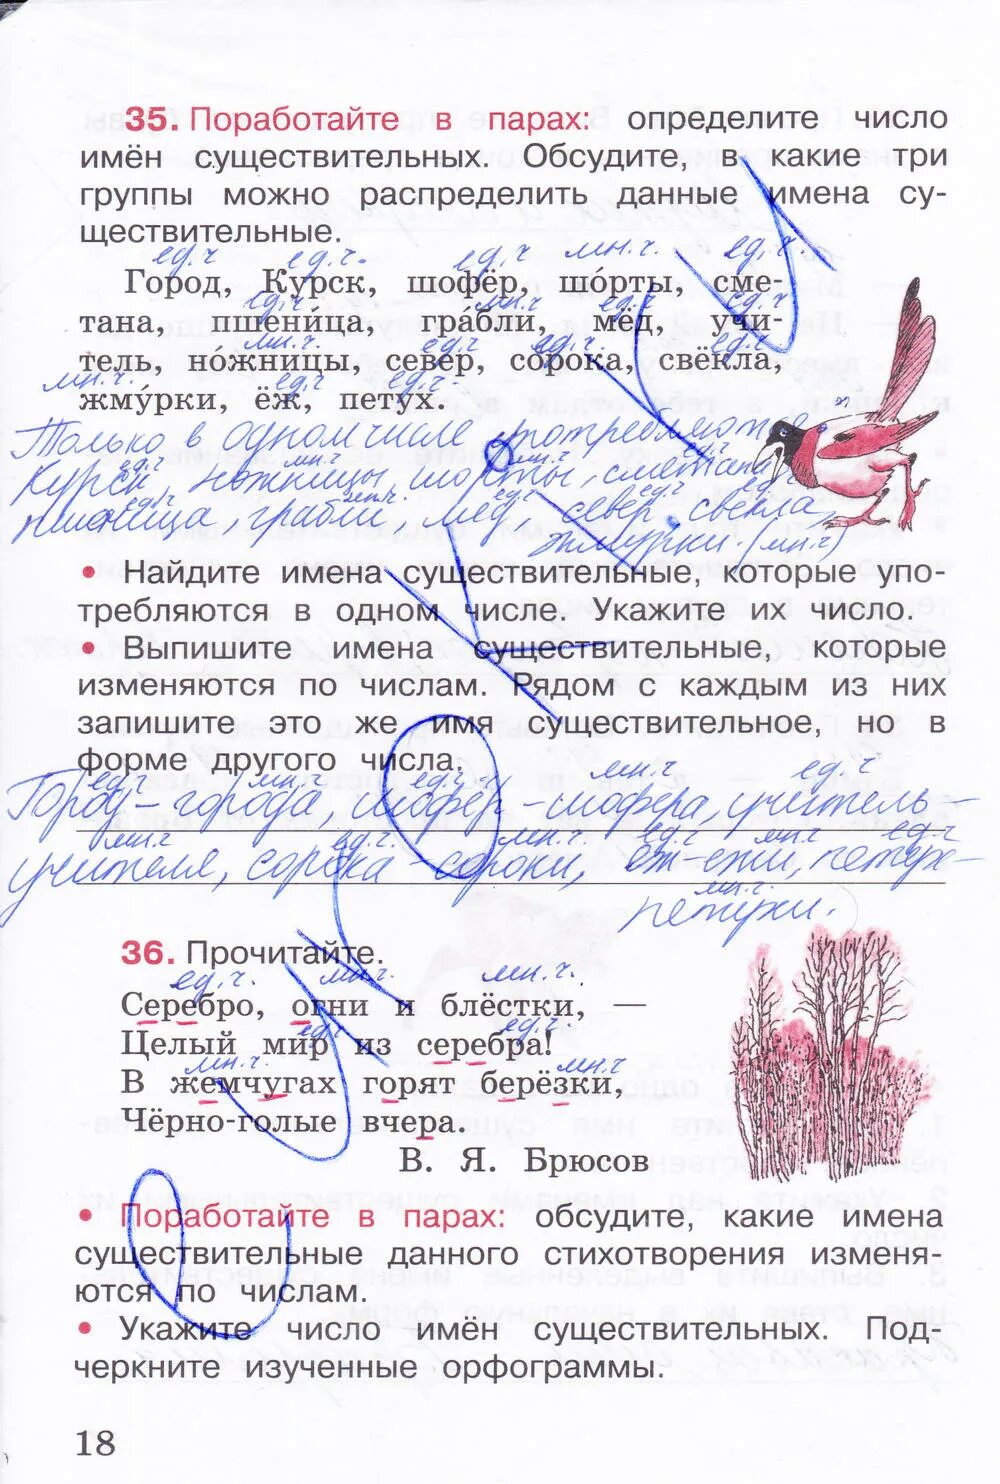 35. Поработайте в парах: определите число
имён существительных. Обсудите, в какие три
группы можно распределить данные имена су-
ществительные.
ед.ч ед.ч. ед.ч мн.ч. ед.ч.
Город, Курск, шофёр, шо́рты, сме-
ед.ч. мн.ч ед.ч ед.ч.
тана, пшени́ца, гра́бли, мёд, учи-
мн.ч. ед.ч ед.ч. ед.ч.
тель, но́жницы, север, сорока, свёкла,
мн.ч. ед.ч ед.ч.
жму́рки, ёж, петух.
Только в одном числе употребляются:
ед.ч мн.ч мн.ч ед.ч
Курск, ножницы, шорты, сметана,
ед.ч мн.ч. ед.ч ед.ч ед.ч
пшеница, грабли, мёд, север, свёкла,
жмурки. (мн.ч)
• Найдите имена существительные, которые упо-
требляются в одном числе. Укажите их число.
• Выпишите имена существительные, которые
изменяются по числам. Рядом с каждым из них
запишите это же имя существительное, но в
форме другого числа.
ед.ч мн.ч ед.ч мн.ч ед.ч
Город – города, шофёр – шофера, учитель –
мн.ч ед.ч. мн.ч. ед.ч мн.ч ед.ч
учителя, сорока – сороки, ёж – ежи, петух –
мн.ч.
петухи.
36. Прочитайте.
ед.ч. мн.ч. мн.ч.
Серебро, огни и блёстки, —
ед.ч ед.ч.
Целый мир из серебра!
мн.ч. мн.ч
В жемчугах горят берёзки,
Чёрно-голые вчера.
В. Я. Брюсов
• Поработайте в парах: обсудите, какие имена
существительные данного стихотворения изменя-
ются по числам.
• Укажите число имён существительных. Под-
черкните изученные орфограммы.
18